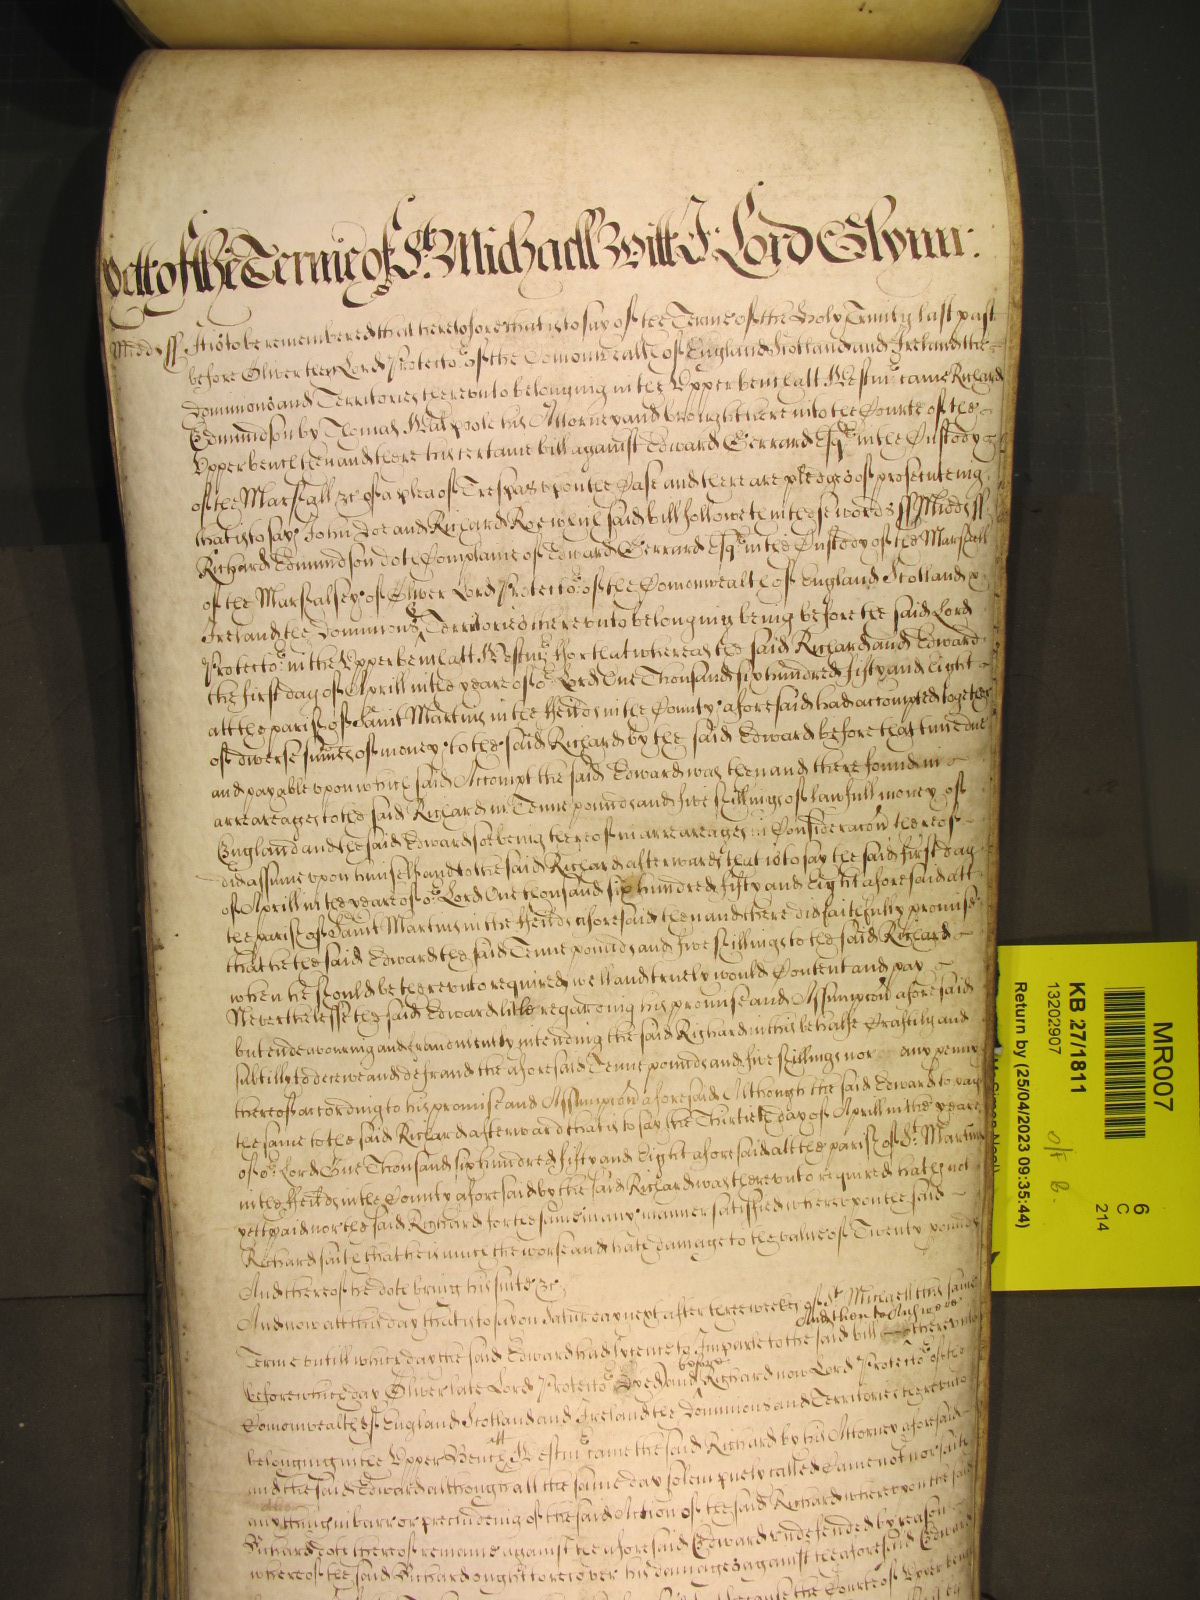 yett of the Terme of St. Michaell Witt J: Lord Glynn:
Midds ss It is to be remembered that heretofore that is to say of the Terme of the Holy Trinity last past
before Oliver then Lord Protector of the Comonwealth of England Scotland and Ireland the
Dominions and Territories thereunto belonging in the Upper bench att Westmr came Richard
Edmundson by Thomas Walpoole his Attorney and brought here into the Courte of the
Upper bench then and there his certaine bill against Edward Gerrard Esqr in the Custody
of the Marshall &c of a plea of Trespas upon the Case and there are pledges of prosecuteing
that is to say John Doe and Richard Roe which said bill followeth in these words ss Midds ss
Richard Edmundson doth Complaine of Edward Gerrard Esqr in the Custody of the Marshall
of the Marshalsey of Oliver Lord Protector of the Comonwealth of England Scotland &
Ireland the Dominions & Territories thereunto belonging being before the said Lord
Protector in the Upper bench att Westmr For that whereas the said Richard and Edward
the first day of Aprill in the yeare of or Lord One Thousand six hundred fifty and Eight
att the parish of Saint Martins in the Feilds in the County aforesaid had accompted together
of diverse sumes of money to the said Richard by the said Edward before that time due
and payable upon which said Accompt the said Edward was then and there found in
arrearages to the said Richard in Tenne pounds and five shillings of lawfull money of
England and the said Edward soe being thereof in arrearages in Consideracon thereof
did assume upon himself and to the said Richard afterwards that is to say the said first day
of Aprill in the yeare of or Lord One thousand six hundred fifty and Eight aforesaid att
the parish of Saint Martins in the Feilds aforesaid then and there did faithfully promise
that he the said Edward the said Tenne pounds and five shillings to the said Richard
when he should be thereunto required well and truely would Content and pay
Neverthelesse the said Edward litle regarding his promise and Assumpcon aforesaid
but endeavouring and fraudulently intending the said Richard in this behalfe Craftily and
subtilly to deceive and defraud the aforesaid Tenne pounds and five shillings nor any penny
thereof according to his promise and Assumpcon aforesaid Although the said Edward to pay
the same to the said Richard afterward that is to say the Thirtieth day of Aprill in the yeare
of or Lord One Thousand six hundred fifty and Eight aforesaid att the parish of St. Martins
in the Feilds in the County aforesaid by the said Richard was thereunto required hath not
yett paid nor the said Richard for the same in any manner satisfied whereupon the said
Richard saith that he is much the worse and hath damage to the value of Twenty pounds
And thereof he doth bring his suite &c
And now att this day that is to say on Saturday next after three weekes of St. Michaell this same
Terme untill which day the said Edward had lycence to Imparle to the said bill and then to Answere thereunto
before which day Oliver late Lord Protector dyed and before Richard now Lord Protector of the
Comonwealth of England Scotland and Ireland the Dominions and Territories thereunto
belonging in the Upper Bench att Westmr came the said Richard by his Attorney aforesaid
and the said Edward although att the same day solempnely called Came not nor saith
any thing in barr or precludeing of the said Action of the said Richard whereupon the said
Richard doth thereof remaine against the aforesaid Edward undefended by reason
whereof the said Richard ought to recover his damages against the aforesaid Edward
because the Courte of Upper bench
MR007
6
C
214
KB 27/1811
13202907
Return by (25/04/2023 09:35:44)